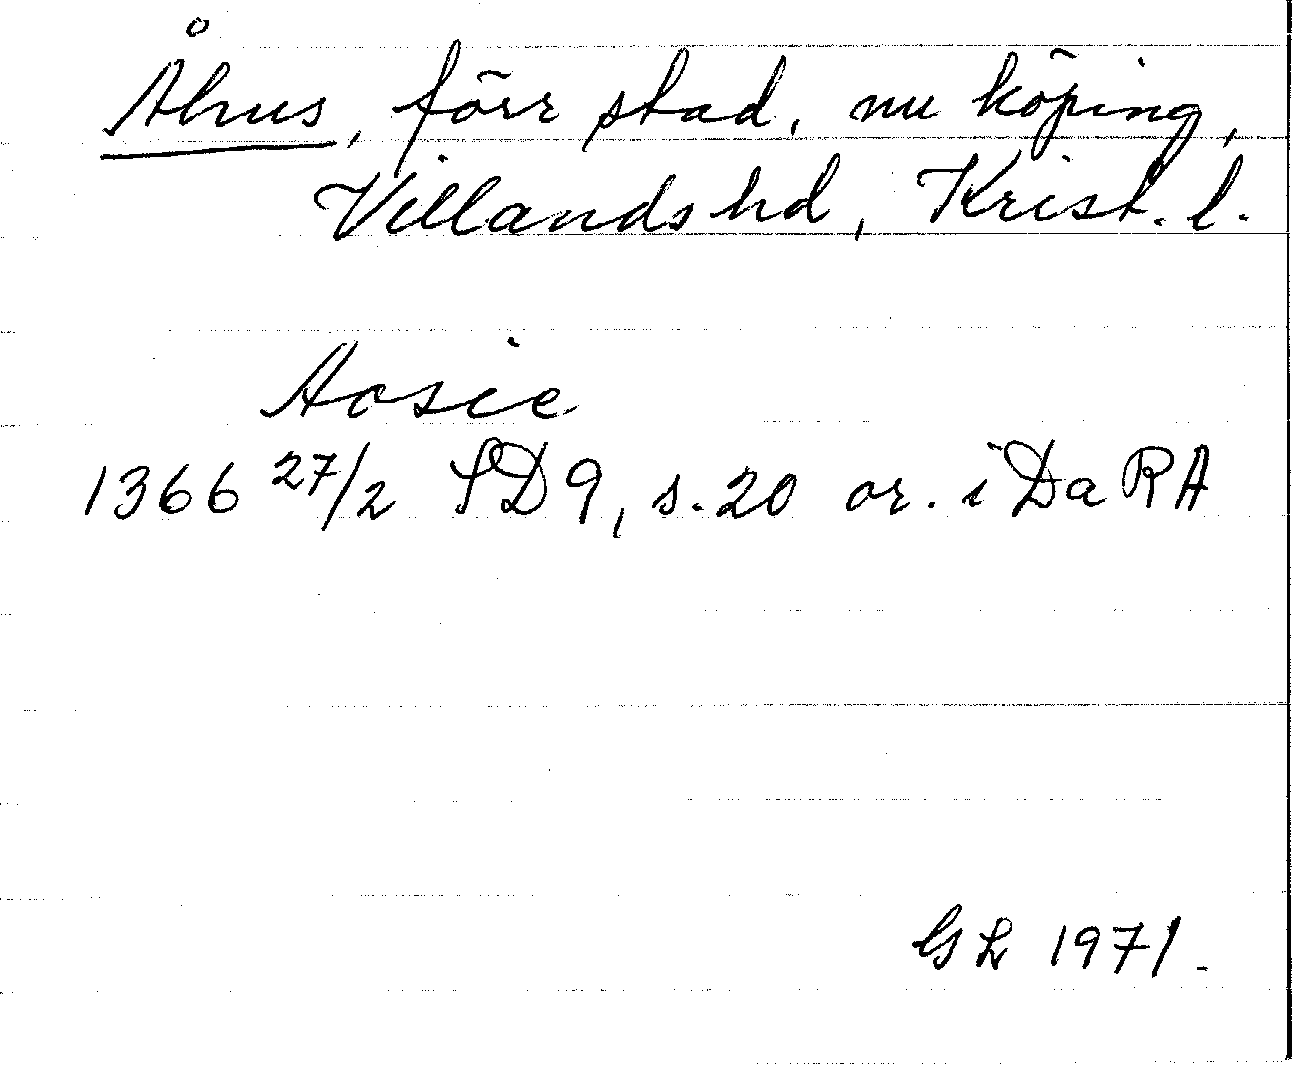 Åhus, förr stad, nu köping,
Villands hd, Krist. l.
Aosie
1366 27/2 SD 9, s. 20 or. i DaRA
GL 1971.